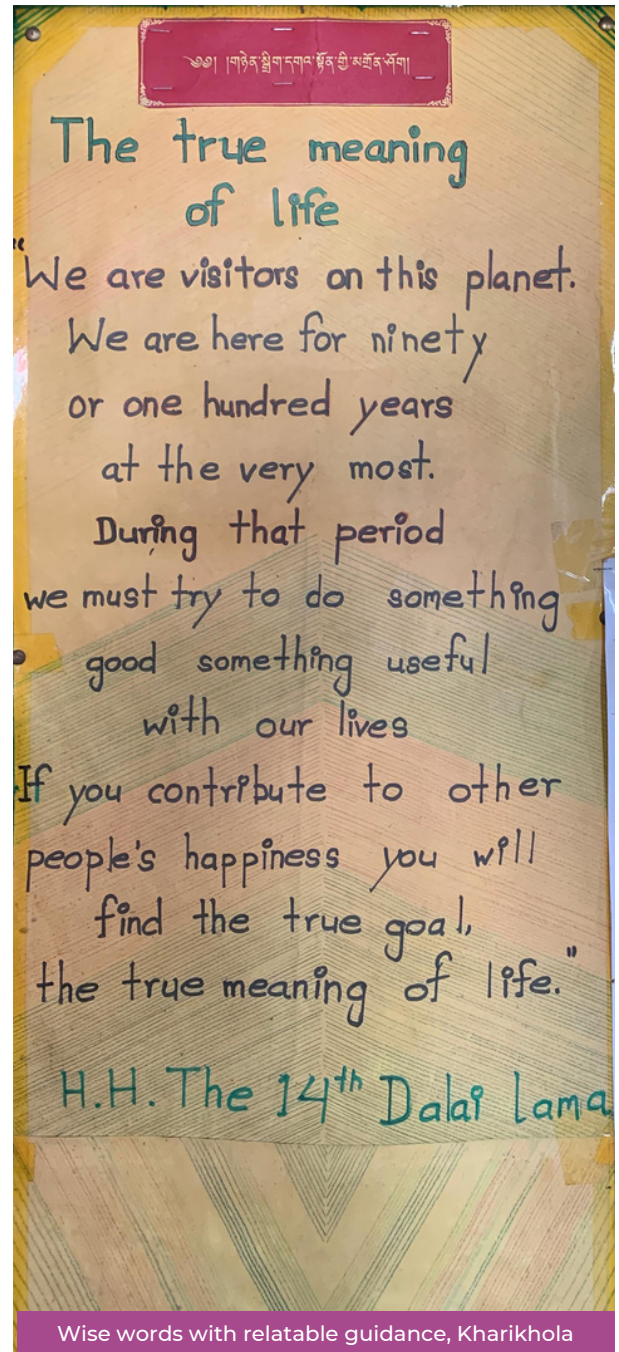 ༄༅། །གཉེན་སྒྲིག་དགའ་སྟོན་གྱི་མགྲོན་ཤོག།
The true meaning
of life
"We are visitors on this planet.
We are here for ninety
or one hundred years
at the very most.
During that period
we must try to do something
good something useful
with our lives
If you contribute to other
people's happiness you will
find the true goal,
the true meaning of life."
H.H. The 14th Dalai lama
Wise words with relatable guidance, Kharikhola